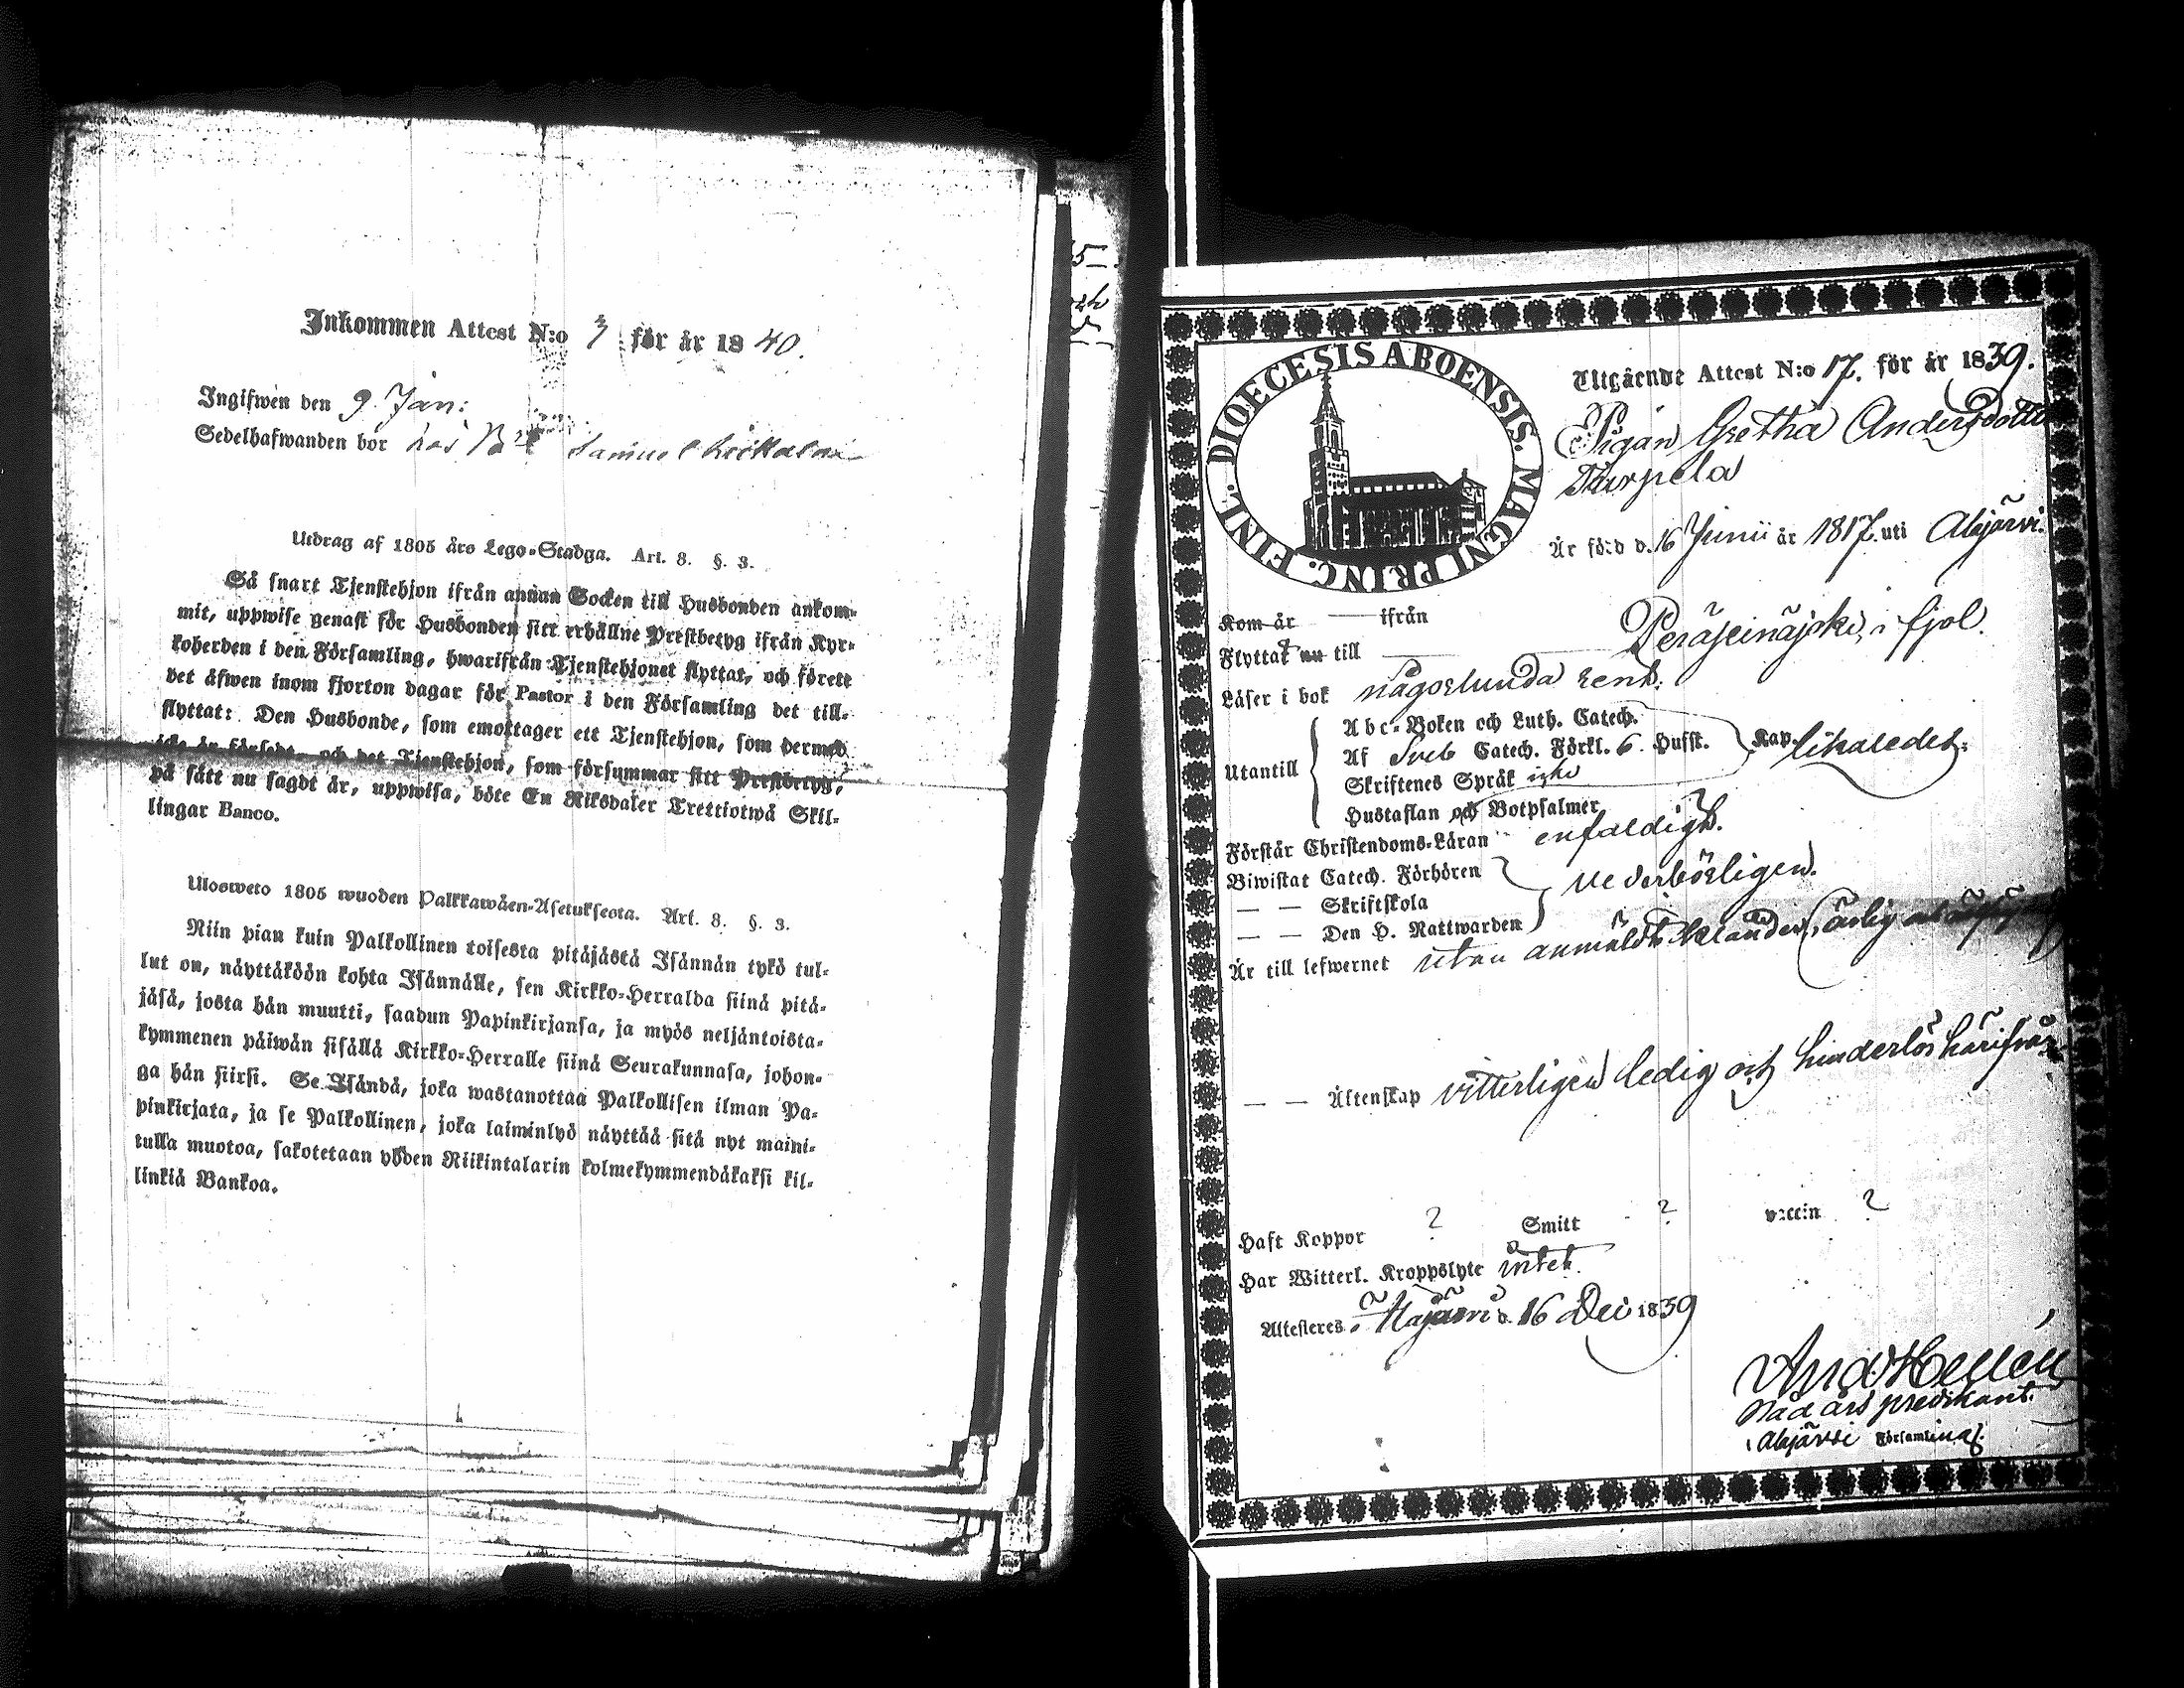 Inkommen Attest N:o 3 för år 1840.
Ingifwen den 9 Jan:
Sedelhafwanden bor hos Samuel
Utdrag af 1805 års Lego-Stadga. Art. 8. §. 3.
Så snart Tjenstehjon ifrån annan Socken till Husbonden ankom-
mit, uppwise genast för Husbonden sitt erhållne Prestbetyg ifrån Kyr-
koherden i den Församling, hwarifrån Tjenstehjonet flyttat, och förete
det äfwen inom fjorton dagar för Pastor i den Församling det till-
flyttat: Den Husbonde, som emottager ett Tjenstehjon, som dermed
icke är försedt, och det Tjenstehjon, som försummar sitt Prestbetyg,
på sätt nu sagdt är, uppwisa, böte En Riksdaler Trettiotwå Skil-
lingar Banco.
Ulosweto 1805 wuoden Palkkawäen-Asetuksesta. Art. 8. §. 3.
Niin pian kuin Palkollinen toisesta pitäjästä Isännän tykö tul-
lut on, näyttäköön kohta Isännälle, sen Kirkko-Herralda siinä pitä-
jäsä, josta hän muutti, saadun Papinkirjansa, ja myös neljäntoista-
kymmenen päiwän sisällä Kirkko-Herralle siinä Seurakunnasa, johon-
ga hän siirsi. Se Isändä, joka wastanottaa Palkollisen ilman Pa-
pinkirjata, ja se Palkollinen, joka laiminlyö näyttää sitä nyt maini-
tulla muotoa, sakotetaan yhden Riikintalarin kolmekymmendäkaksi kil-
linkiä Bankoa.
DIOECESIS ABOENSIS. MAGNI PRINC. FINL.
Utgående Attest N:o 17. för år 1839.
Pigan Gretha Andersdotter
Turpela
Är född d. 16 Junii år 1817. uti Alajärvi.
Kom år ifrån
Flyttat nu till Peräseinäjoki, i fjol.
Läser i bok någorlunda rent.
Utantill
Abc-Boken och Luth. Catech.
Af Sveb Catech. Förkl. 6. Hufst. Kap. likaledes
Skriftenes Språk icke
Hustaflan och Botpsalmer
Förstår Christendoms-Läran enfaldigt.
Biwistat Catech. Förhören
— — Skriftskola vederbörligen.
— — Den H. Nattwarden
Är till lefwernet utan anmäldt klander, ärlig
— — Äktenskap vitterligen ledig och hinderlös härifrån
Haft Koppor ? Smitt ? vaccin ?
Har Witterl. Kroppslyte intet.
Attesteres, Alajärvi d. 16 Dec 1839
And. Hellén
Nådårs predikant.
i Alajärvi Församling.